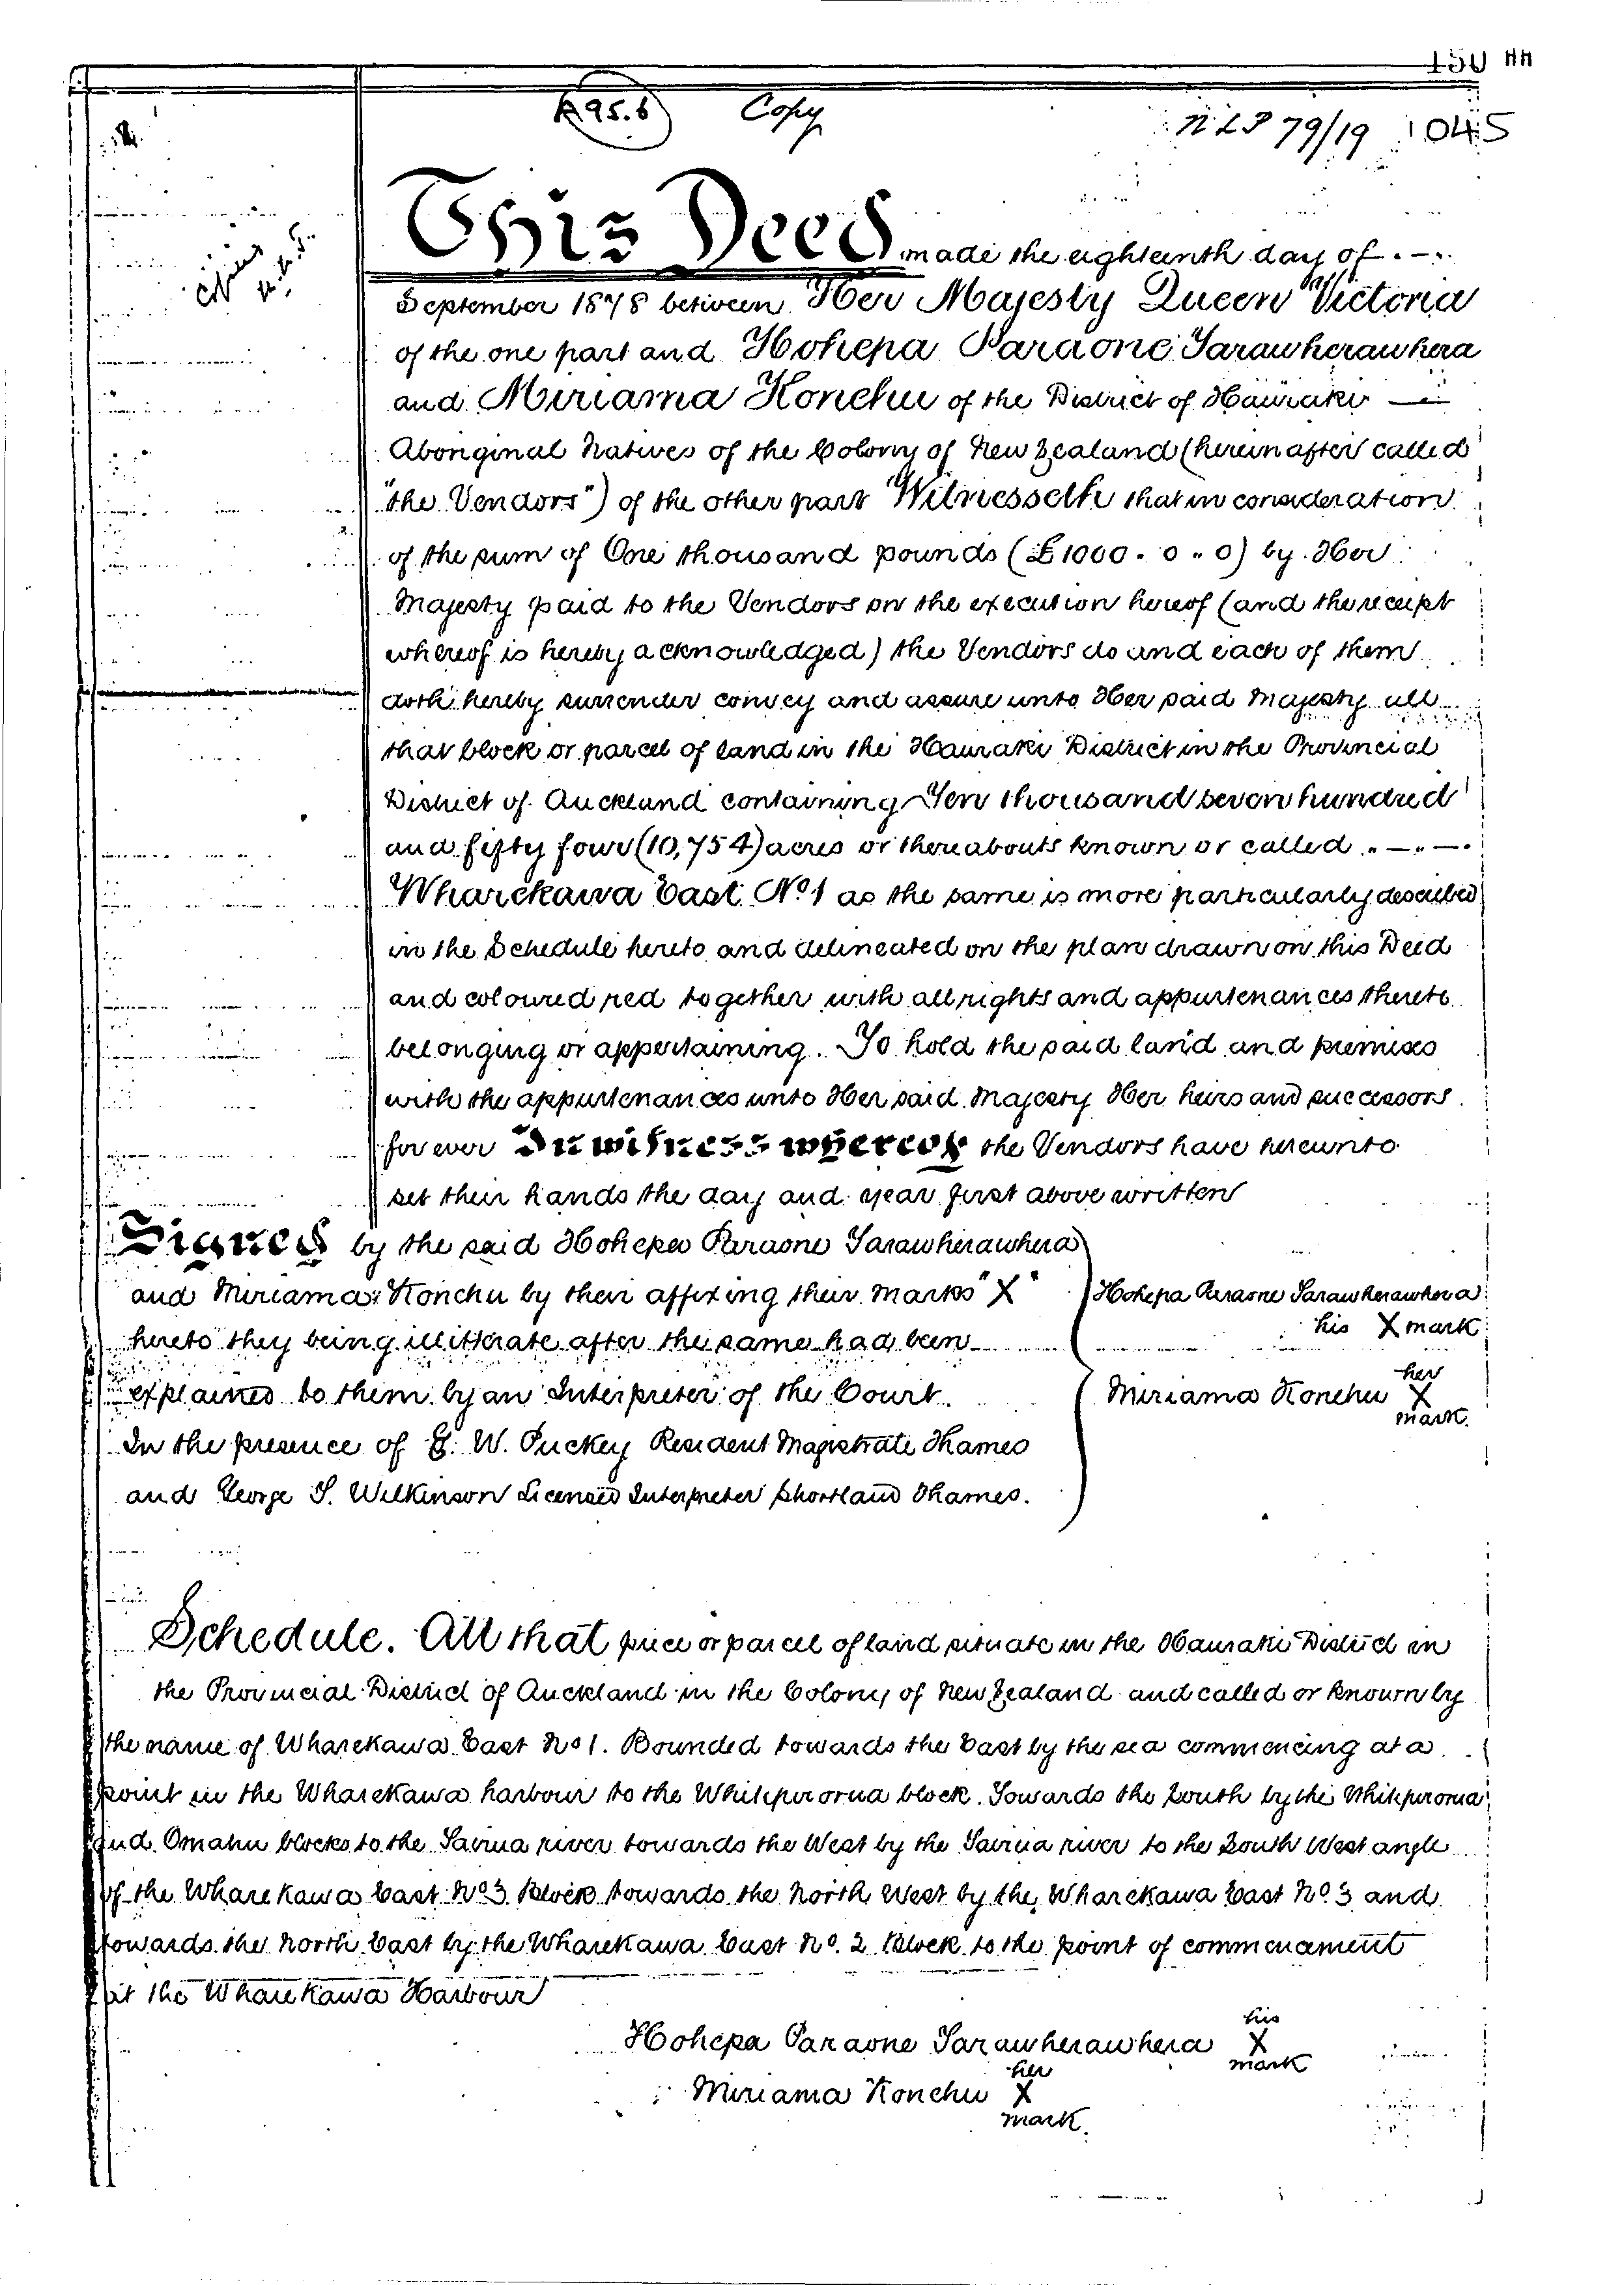 R95.6 Copy
NLP 79/19 1045
This Deed made the eighteenth day of
September 1878 between Her Majesty Queen Victoria
of the one part and Hohepa Paraone Tarawherawhera
and Miriama Konehu of the District of Hauraki
Aboriginal Natives of the Colony of New Zealand (hereinafter called
"the Vendors") of the other part Witnesseth that in consideration
of the sum of One thousand pounds (£1000. 0. 0) by Her
Majesty paid to the Vendors on the execution hereof (and the receipt
whereof is hereby acknowledged) the Vendors do and each of them
doth hereby surrender convey and assure unto Her said Majesty all
that block or parcel of land in the Hauraki District in the Provincial
District of Auckland containing Ten thousand seven hundred
and fifty four (10,754) acres or thereabouts known or called
Wharekawa East No 1 as the same is more particularly described
in the Schedule hereto and delineated on the plan drawn on this Deed
and coloured red together with all rights and appurtenances thereto
belonging or appertaining. To hold the said land and premises
with the appurtenances unto Her said Majesty Her heirs and successors
for ever In witness whereof the Vendors have hereunto
set their hands the day and year first above written
Signed by the said Hohepa Paraone Tarawherawhera
and Miriama Konehu by their affixing their marks "X"
hereto they being illiterate after the same had been
explained to them by an Interpreter of the Court.
In the presence of E. W. Puckey Resident Magistrate Thames
and George T. Wilkinson Licensed Interpreter Shortland Thames.
Hohepa Paraone Tarawherawhera
his X mark
her
Miriama Konehu X
mark.
Schedule. All that piece or parcel of land situate in the Hauraki District in
the Provincial District of Auckland in the Colony of New Zealand and called or known by
the name of Wharekawa East No 1. Bounded towards the East by the sea commencing at a
point in the Wharekawa harbour to the Whitipirorua block. Towards the South by the Whitipirorua
and Omahu blocks to the Tairua river towards the West by the Tairua river to the South West angle
of the Wharekawa East No 3 Block towards the North West by the Wharekawa East No. 3 and
towards the North East by the Wharekawa East No. 2 Block to the point of commencement
at the Wharekawa Harbour
his
Hohepa Paraone Tarawherawhera X
mark
her
Miriama Konehu X
mark.